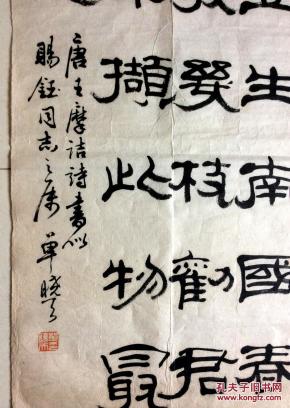 生南國春
幾枝勸君
擷此物最
唐王摩詰詩書似
賜鈺同志之属 單曉天
孔夫子旧书网